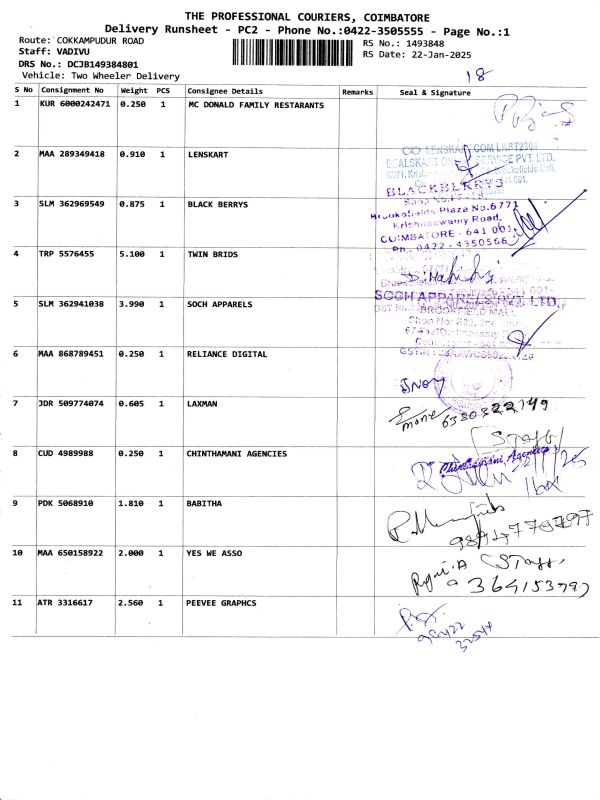 THE PROFESSIONAL COURIERS, COIMBATORE
Delivery Runsheet - PC2 - Phone No.:0422-3505555 - Page No.:1
Route: COKKAMPUDUR ROAD
RS No.: 1493848
Staff: VADIVU
RS Date: 22-Jan-2025
DRS No.: DCJB149384801
Vehicle: Two Wheeler Delivery
18
S No Consignment No Weight PCS Consignee Details Remarks Seal & Signature
1 KUR 6000242471 0.250 1 MC DONALD FAMILY RESTARANTS
2 MAA 289349418 0.910 1 LENSKART
LENSKART.COM
PVT. LTD.
3 SLM 362969549 0.875 1 BLACK BERRYS
BLACKBERRYS
Brookefields Plaza No.6771
Krishnaswamy Road,
COIMBATORE - 641 001.
Ph: 0422 - 4350566
4 TRP 5576455 5.100 1 TWIN BRIDS
5 SLM 362941038 3.990 1 SOCH APPARELS
SOCH APPARELS PVT. LTD.
BROOKFIELD MALL
6 MAA 868789451 0.250 1 RELIANCE DIGITAL
7 JDR 509774074 0.605 1 LAXMAN
6380322149
(Staff)
8 CUD 4989988 0.250 1 CHINTHAMANI AGENCIES
Chinthamani Agencies
1 box
9 PDK 5068910 1.810 1 BABITHA
10 MAA 650158922 2.000 1 YES WE ASSO
(Staff)
11 ATR 3316617 2.560 1 PEEVEE GRAPHCS